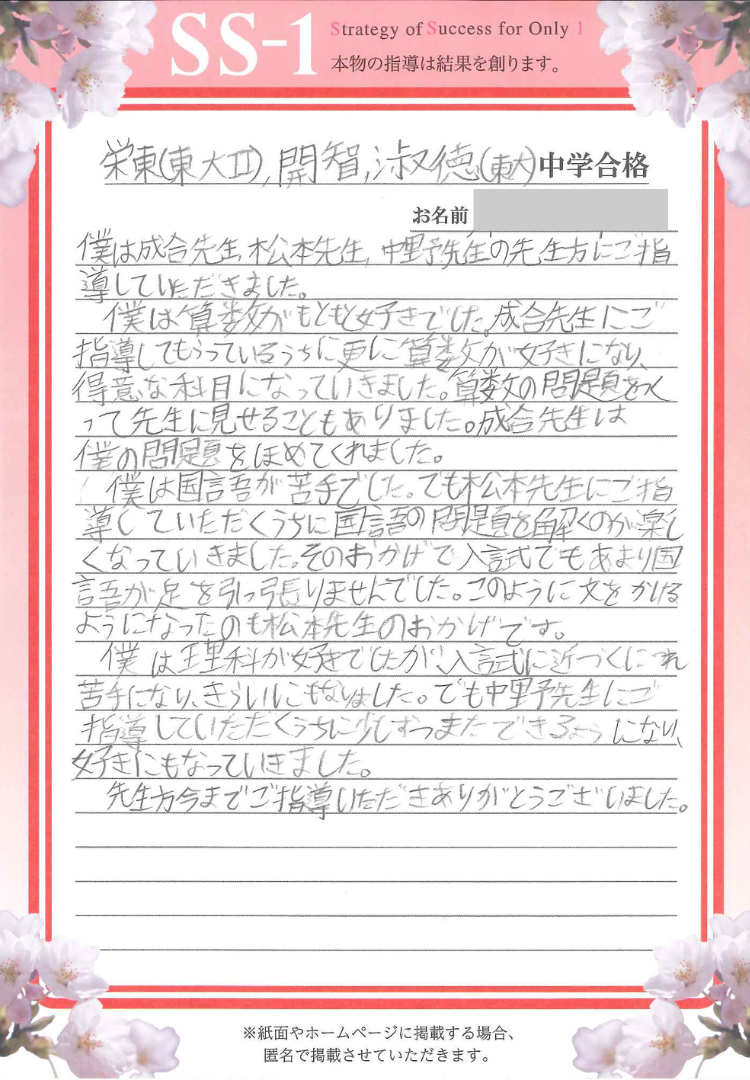 SS-1
Strategy of Success for Only 1
本物の指導は結果を創ります。
栄東(東大Ⅱ),開智,淑徳(東大)中学合格
お名前
僕は成合先生,松本先生,中野先生の先生方にご指
導していただきました。
僕は算数がもともと好きでした。成合先生にご
指導してもらっているうちに更に算数が好きになり、
得意な科目になっていきました。算数の問題をつく
って先生に見せることもありました。成合先生は
僕の問題をほめてくれました。
僕は国語が苦手でした。でも松本先生にご指
導していただくうちに国語の問題を解くのが楽し
くなっていきました。そのおかげで入試でもあまり国
語が足を引っ張りませんでした。このように文をかける
ようになったのも松本先生のおかげです。
僕は理科が好きでしたが、入試に近づくにつれ
苦手になり、きらいにもなりました。でも中野先生にご
指導していただくうちに少しずつまたできるようになり、
好きにもなっていきました。
先生方今までご指導いただきありがとうございました。
※紙面やホームページに掲載する場合、
匿名で掲載させていただきます。